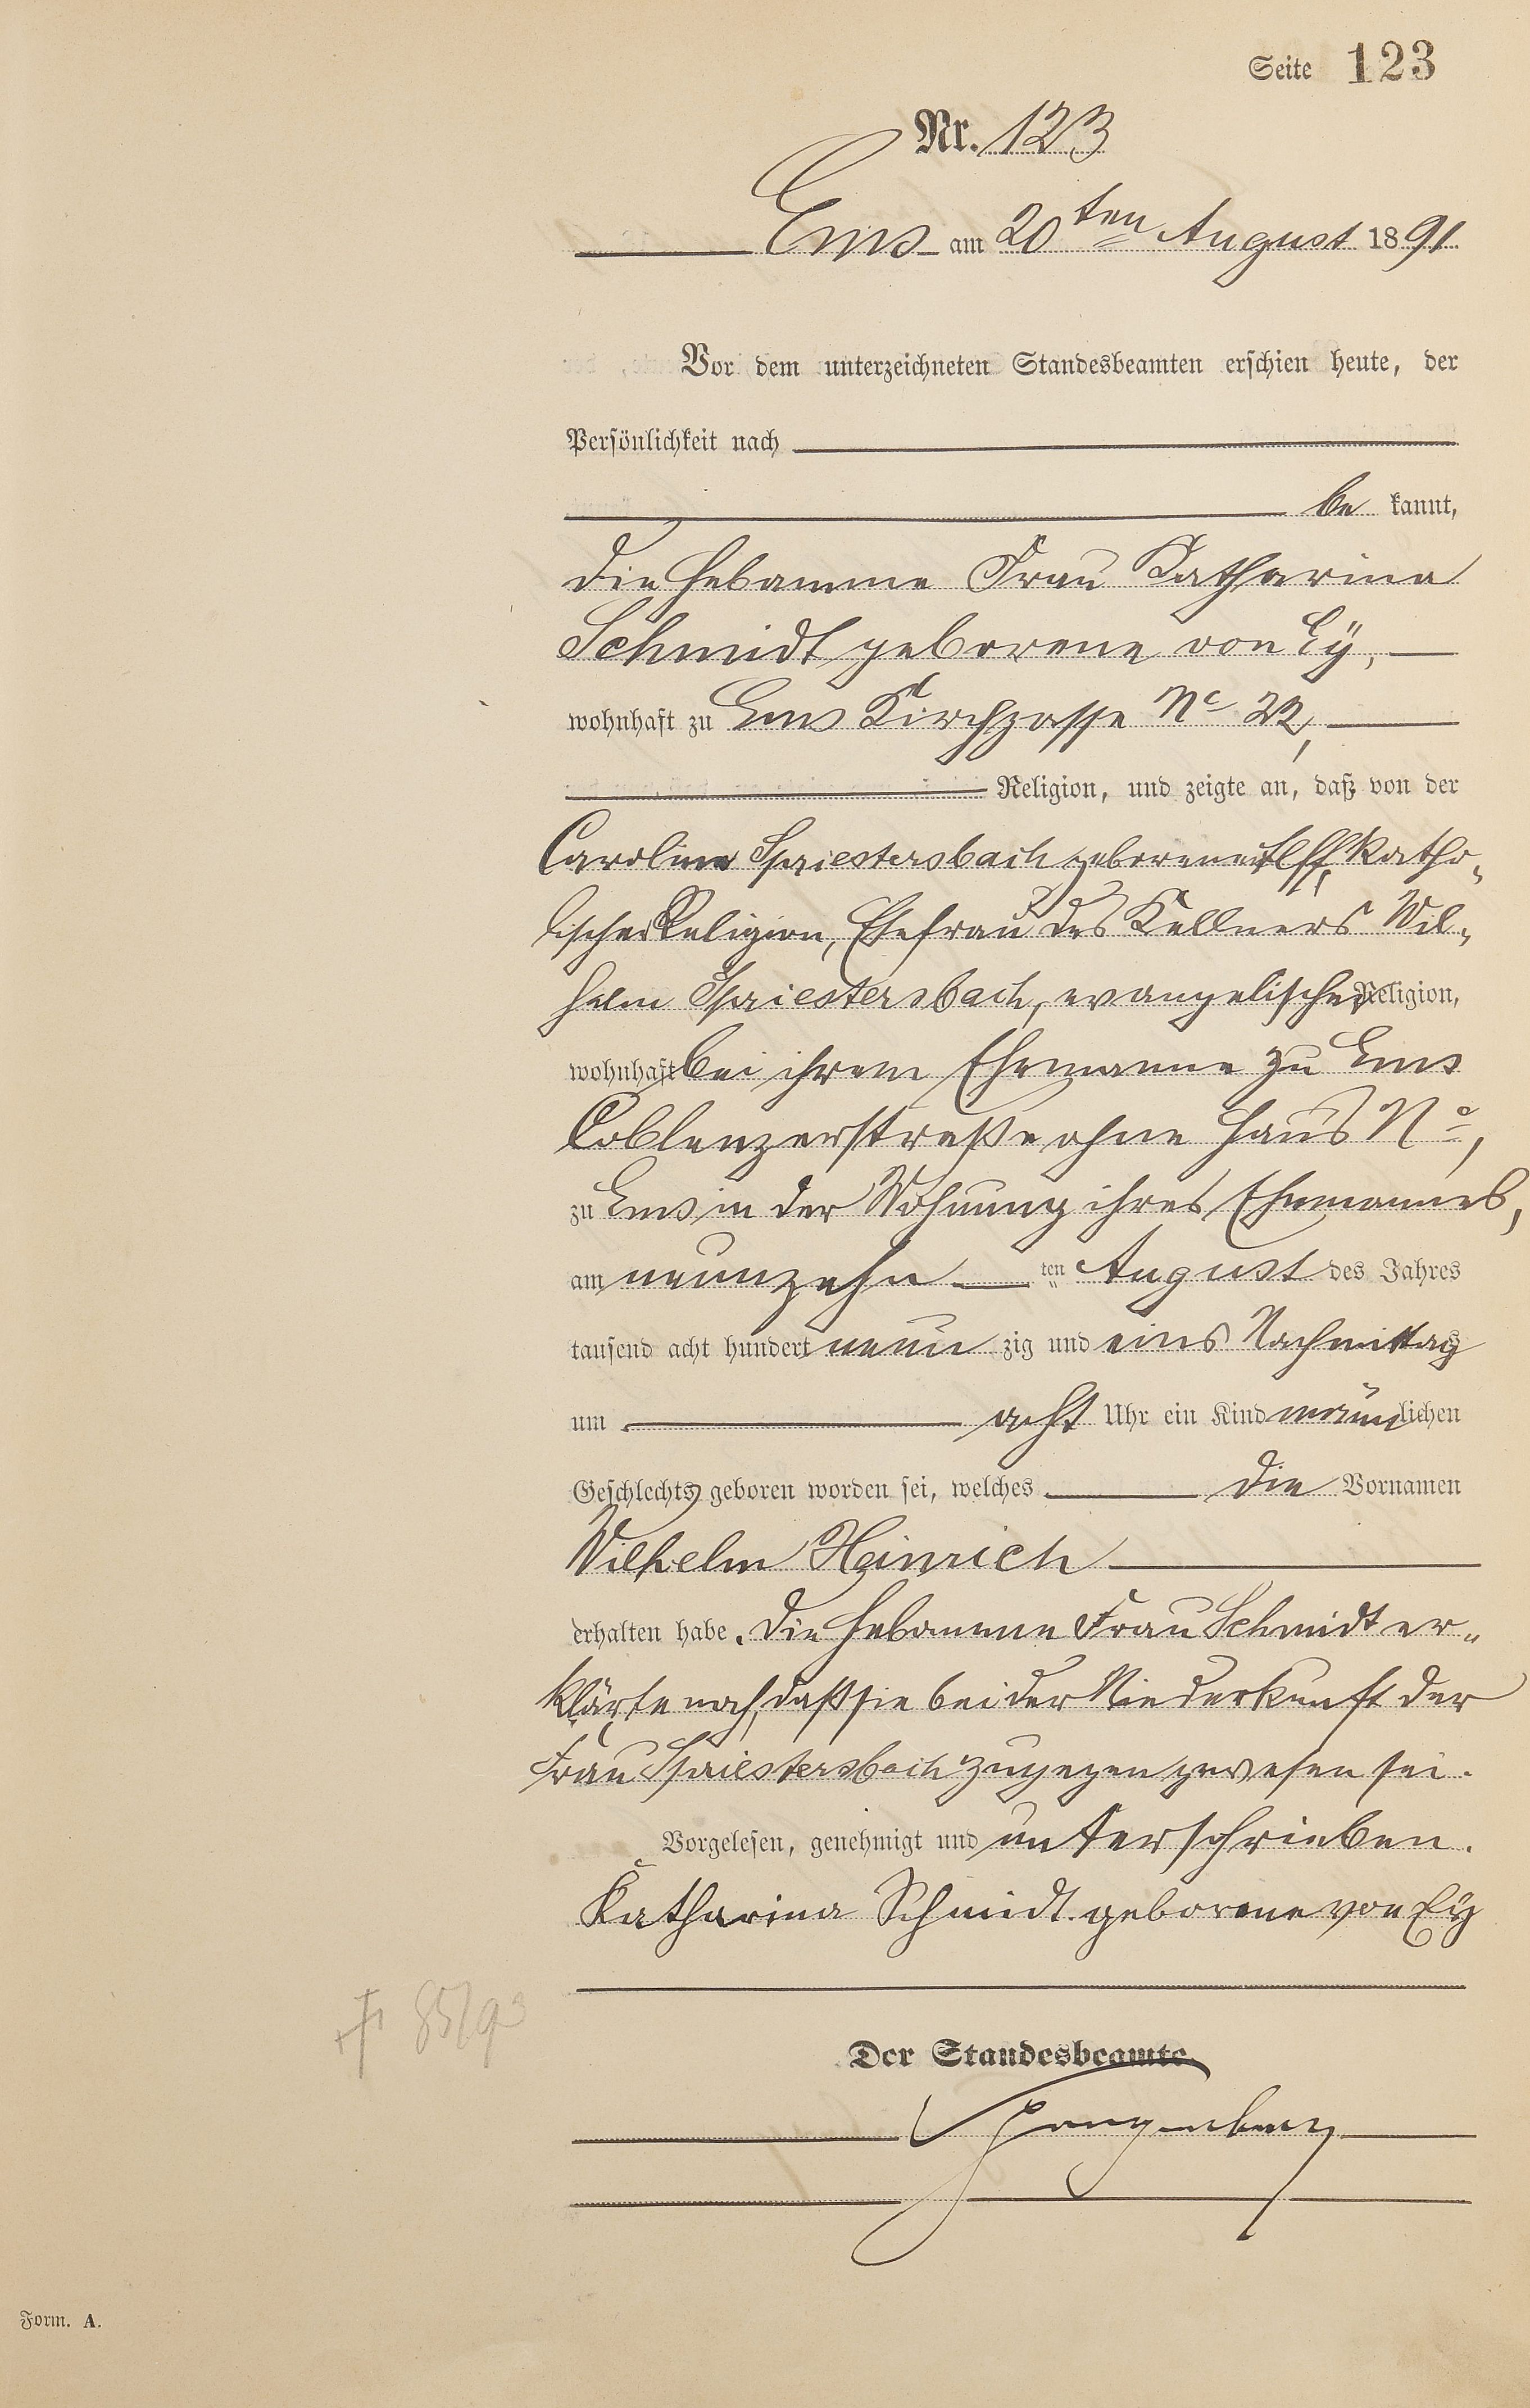 Seite 123
Nr. 123
Ems am 20ten August 1891
Vor dem unterzeichneten Standesbeamten erschien heute, der
Persönlichkeit nach
be kannt,
die Hebamme Frau Katharina
Schmidt geborene von Eÿ,
wohnhaft zu Ems Kirchgasse No 22,
Religion, und zeigte an, daß von der
Caroline Spriestersbach geborenen katho-
lischer Religion, Ehefrau des Kellners Wil-
helm Spriestersbach, evangelischer Religion,
wohnhaft bei ihrem Ehemanne zu Ems
Coblenzerstraße ohne Haus No,
zu Ems in der Wohnung ihres Ehemannes,
am neunzehn ten August des Jahres
tausend acht hundert neun zig und eins Nachmittag
um acht Uhr ein Kind männlichen
Geschlechts geboren worden sei, welches die Vornamen
Wilhelm Heinrich
erhalten habe. Die Hebamme Frau Schmidt er-
klärte noch, daß sie bei der Niederkunft der
Frau Spriestersbach zugegen gewesen sei.
Vorgelesen, genehmigt und unterschrieben.
Katharina Schmidt geborene von Eÿ
† 85/93
Der Standesbeamte
Form. A.